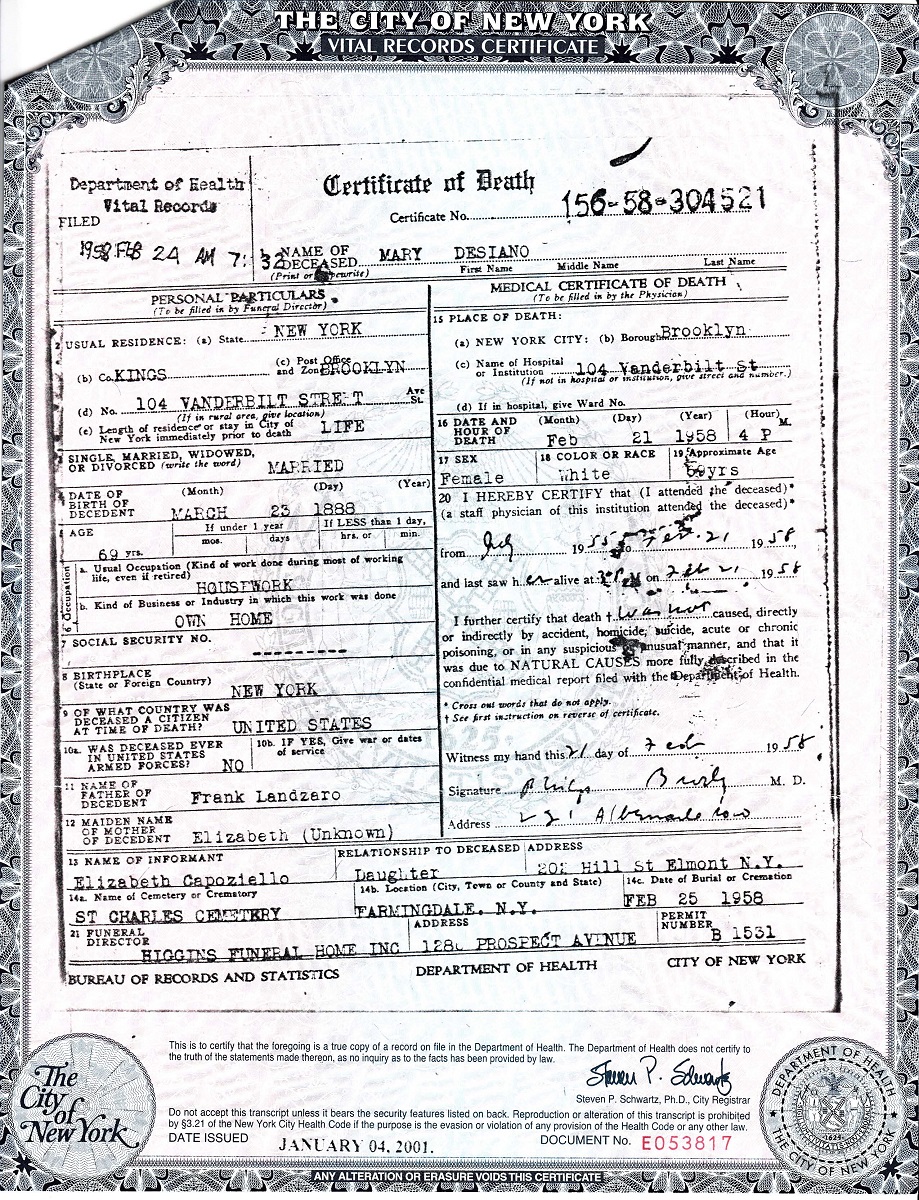 THE CITY OF NEW YORK
VITAL RECORDS CERTIFICATE
Department of Health
Vital Records
FILED
1958 FEB 24 AM 7:32
Certificate of Death
Certificate No. 156-58-304521
1 NAME OF DECEASED MARY DESIANO
(Print or Typewrite) First Name Middle Name Last Name
PERSONAL PARTICULARS
(To be filled in by Funeral Director)
2 USUAL RESIDENCE: (a) State NEW YORK
(b) Co. KINGS (c) Post Office and Zone BROOKLYN
(d) No. 104 VANDERBILT STREET Ave St.
(If in rural area, give location)
(e) Length of residence or stay in City of
New York immediately prior to death LIFE
3 SINGLE, MARRIED, WIDOWED,
OR DIVORCED (write the word) MARRIED
4 DATE OF BIRTH OF DECEDENT (Month) (Day) (Year)
MARCH 23 1888
5 AGE If under 1 year If LESS than 1 day,
69 yrs. mos. days hrs. or min.
6 Occupation
a. Usual Occupation (Kind of work done during most of working
life, even if retired)
HOUSEWORK
b. Kind of Business or Industry in which this work was done
OWN HOME
7 SOCIAL SECURITY NO.
8 BIRTHPLACE
(State or Foreign Country) NEW YORK
9 OF WHAT COUNTRY WAS
DECEASED A CITIZEN
AT TIME OF DEATH? UNITED STATES
10a. WAS DECEASED EVER
IN UNITED STATES
ARMED FORCES? NO
10b. IF YES, Give war or dates
of service
11 NAME OF
FATHER OF
DECEDENT Frank Landzaro
12 MAIDEN NAME
OF MOTHER
OF DECEDENT Elizabeth (Unknown)
MEDICAL CERTIFICATE OF DEATH
(To be filled in by the Physician)
15 PLACE OF DEATH:
(a) NEW YORK CITY: (b) Borough Brooklyn
(c) Name of Hospital
or Institution 104 Vanderbilt St
(If not in hospital or institution, give street and number.)
(d) If in hospital, give Ward No.
16 DATE AND HOUR OF DEATH (Month) (Day) (Year) (Hour)
Feb 21 1958 4 P M.
17 SEX 18 COLOR OR RACE 19 Approximate Age
Female White 69yrs
20 I HEREBY CERTIFY that (I attended the deceased)*
(a staff physician of this institution attended the deceased)*
from 1955 to Feb. 21, 1958,
and last saw her alive at M on Feb 21, 1958
I further certify that death † was not caused, directly
or indirectly by accident, homicide, suicide, acute or chronic
poisoning, or in any suspicious or unusual manner, and that it
was due to NATURAL CAUSES more fully described in the
confidential medical report filed with the Department of Health.
* Cross out words that do not apply.
† See first instruction on reverse of certificate.
Witness my hand this 21 day of Feb 1958
Signature M. D.
Address
13 NAME OF INFORMANT RELATIONSHIP TO DECEASED ADDRESS
Elizabeth Capoziello Daughter Hill St Elmont N.Y.
14a. Name of Cemetery or Crematory 14b. Location (City, Town or County and State) 14c. Date of Burial or Cremation
ST CHARLES CEMETERY FARMINGDALE, N.Y. FEB 25 1958
21 FUNERAL DIRECTOR ADDRESS PERMIT NUMBER
HIGGINS FUNERAL HOME INC PROSPECT AVENUE B 1531
BUREAU OF RECORDS AND STATISTICS DEPARTMENT OF HEALTH CITY OF NEW YORK
This is to certify that the foregoing is a true copy of a record on file in the Department of Health. The Department of Health does not certify to
the truth of the statements made thereon, as no inquiry as to the facts has been provided by law.
Steven P. Schwartz
Steven P. Schwartz, Ph.D., City Registrar
Do not accept this transcript unless it bears the security features listed on back. Reproduction or alteration of this transcript is prohibited
by §3.21 of the New York City Health Code if the purpose is the evasion or violation of any provision of the Health Code or any other law.
DATE ISSUED JANUARY 04, 2001. DOCUMENT No. E053817
The City of New York
DEPARTMENT OF HEALTH
THE CITY OF NEW YORK
1625
ANY ALTERATION OR ERASURE VOIDS THIS CERTIFICATE